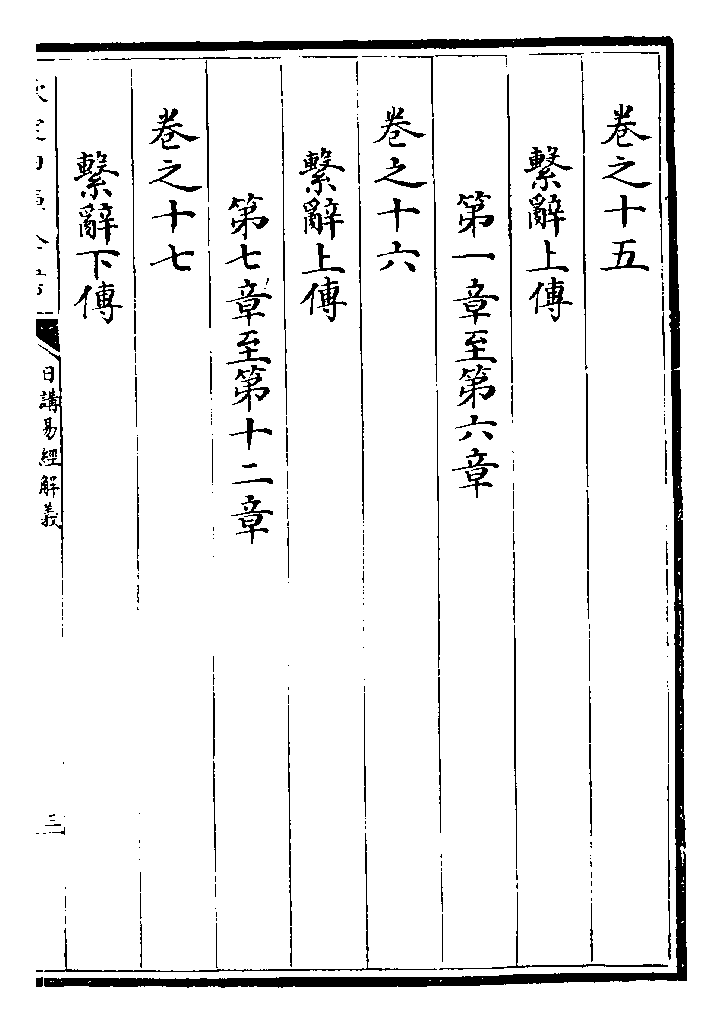 卷之十五
繫辭上傳
第一章至第六章
卷之十六
繫辭上傳
第七章至第十二章
卷之十七
繫辭下傳
日講易經解義
三